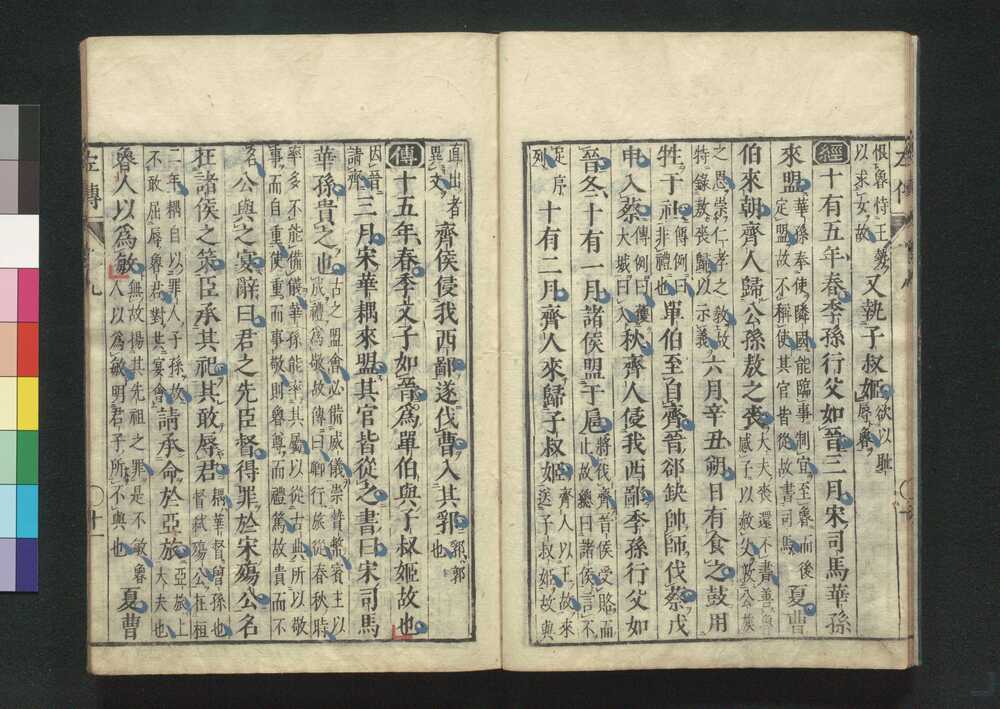 恨魯恃王勢以求女故又執子叔姬欲以恥辱魯
經十有五年春季孫行父如晉三月宋司馬華孫
來盟華孫奉使隣國能臨事制宜至魯而後定盟故不稱使其官皆從故書司馬夏曹
伯來朝齊人歸公孫敖之喪大夫喪還不書善魯感子以赦父敦公族
之恩崇仁孝之教故特錄敖喪歸以示義六月辛丑朔日有食之鼓用
牲于社傳例曰非禮也單伯至自齊晉郤缺帥師伐蔡戊
申入蔡傳例曰獲大城曰入秋齊人侵我西鄙季孫行父如
晉冬十有一月諸侯盟于扈將伐齊晉侯受賂而止故緫曰諸侯言不
足序列十有二月齊人來歸子叔姬齊人以王故來送子叔姬故與
直出者異文齊侯侵我西鄙遂伐曹入其郛郛郭也
傳十五年春季文子如晉爲單伯與子叔姬故也
因晉請齊三月宋華耦來盟其官皆從之書曰宋司馬
華孫貴之也古之盟會必備威儀崇贄幣賓主以成禮爲敬故傳曰卿行旅從春秋時
率多不能備儀華孫能率其屬以從古典所以敬事而自重使重而事敬則魯尊而禮篤故貴而不
名公與之宴辭曰君之先臣督得罪於宋殤公名
在諸侯之策臣承其祀其敢辱君耦華督曾孫也督弒殤公在桓
二年耦自以罪人子孫故不敢屈辱魯君對共宴會請承命於亞旅亞旅上大夫也
魯人以爲敏無故揚其先祖之罪是不敏魯人以爲敏明君子所不與也夏曹
左傳